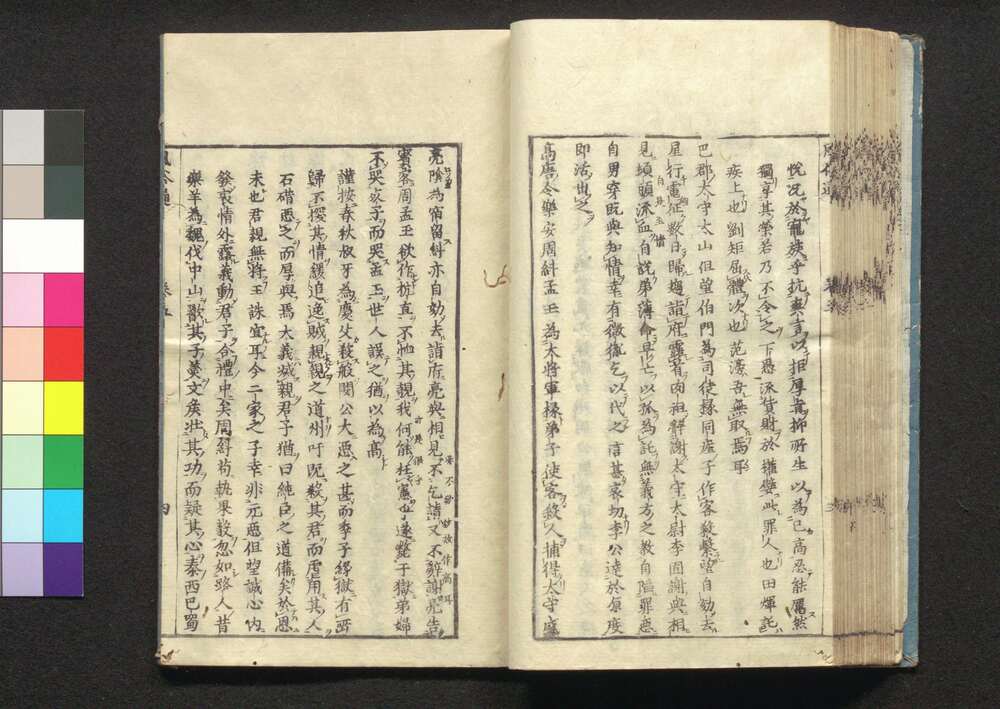 悅况於寵族乎抗爽言以拒厚貴抑所生以為己高忍能厲然
獨享其榮若乃不令之下愚流貨財於權嬖此罪人也田煇託
疾上也劉矩屈體次也范滂吾無取焉耳
巴郡太守太山但望伯門為司徒掾同產子作客殺繫望自劾去
星行電征數日歸趨詣府露首肉袒辭謝太守太尉李固謝與相
見頓頭流血自說弟薄命早亡以孤為託無義方之教自陷罪惡
自男穿既與知情幸有微胤乞以代之言甚哀切李公達於原度
即活出之
高唐令樂安周糾孟玉為大將軍掾弟子使客殺人捕得太守盛
亮陰為宿留糾亦自劾去詣府亮與相見不乞請又不辭謝亮告
賓客周孟玉欲作抗直不恤其親我何能枉憲也遂斃于獄弟婦
不哭家子而哭孟玉世人誤之猶以為高
謹按春秋叔牙為慶父殺般閔公大惡之甚而季子緣獄有所
歸不探其情緩追逸賊親親之道州吁既殺其君而虐用其人
石碏惡之而厚與焉大義滅親君子猶曰純臣之道備矣於恩
未也君親無將王誅宜耳今二家之子幸非元惡但望誠心內
發哀情外露義動君子合禮中矣周糾苟執果毅忽如路人昔
樂羊為魏伐中山歠其子羹文侯壯其功而疑其心秦西巴蜀
四